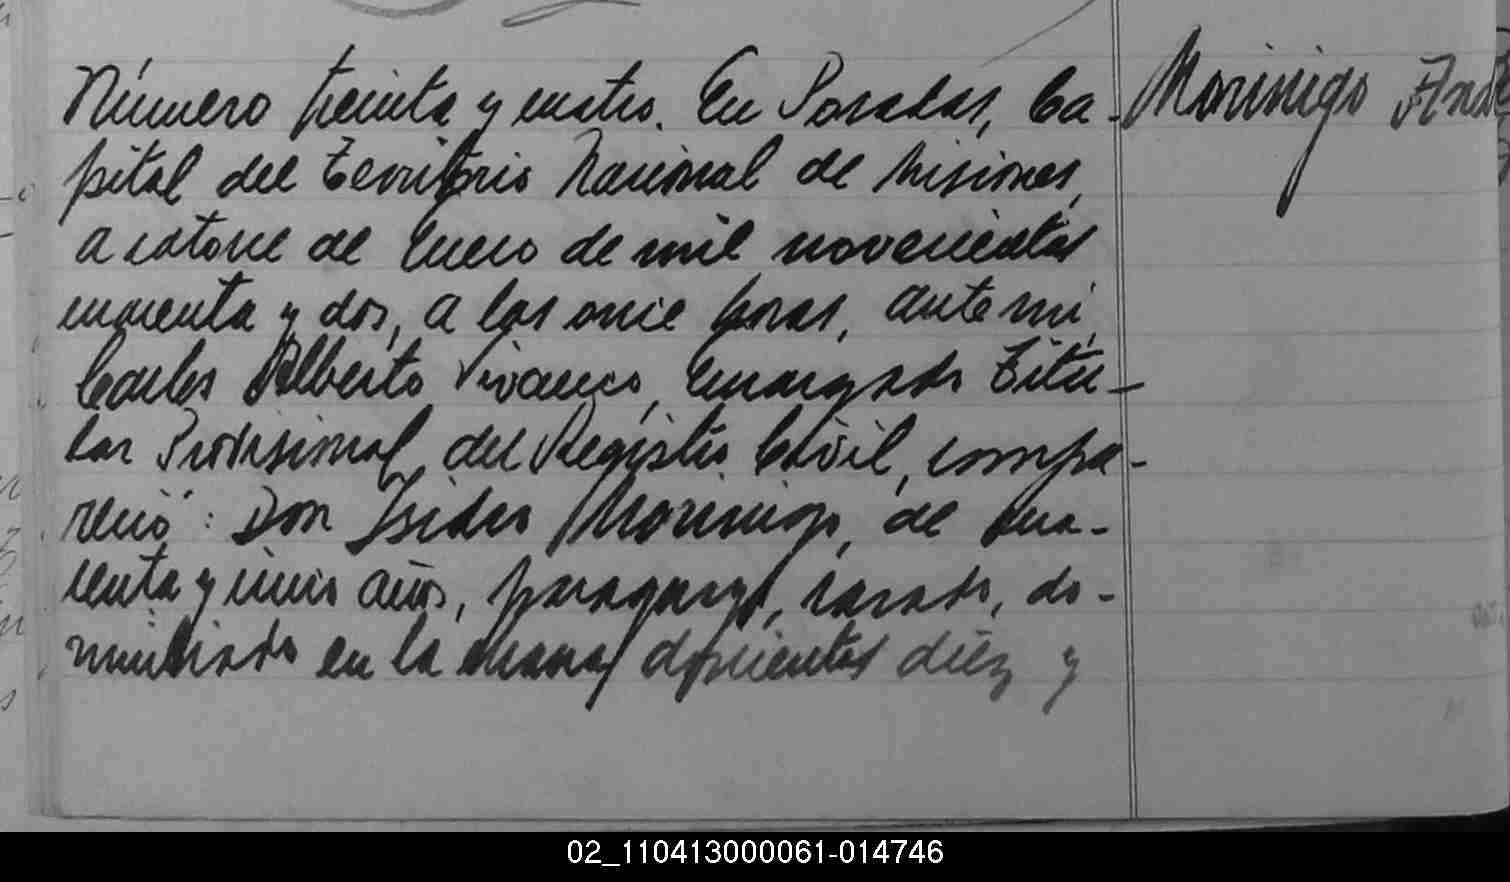 Número treinta y cuatro. En Posadas, Ca-
pital del Territorio Nacional de Misiones,
a catorce de Enero de mil novecientos
cuarenta y dos, a las once horas, ante mi,
Carlos Alberto Vivanco, Encargado Titu-
lar Provisional del Registro Civil, compa-
reció: Don Isidro Morinigo, de cua-
renta y cinco años, paraguayo, casado, do-
miciliado en la chacra doscientos diez y
Morinigo
02_110413000061-014746